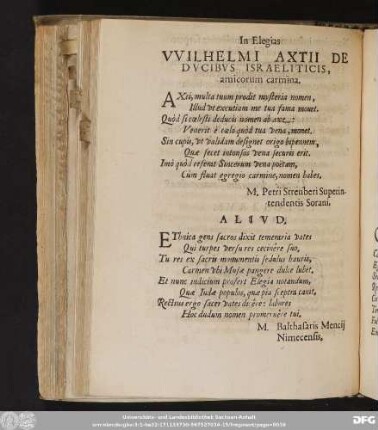 In Elegias
VVILHELMI AXTII DE
DVCIBVS ISRAELITICIS,
amicorum carmina.
AXti, multa tuum prodit mysteria nomen,
Illud ut excutiam me tua fama monet.
Quòd si cælesti deducis nomen ab axe
Venerit è cælo quòd tua vena, monet.
Sin cupis, ut validam designet origo bipennem,
Quæ secet intonsos vena securis erit.
Imò quòd resonet vena poëtam,
Cùm fluat egregio carmine, nomen habes.
M. Petri Streuberi Superin-
tendentis Sorani.
ALIVD.
EThnica gens sacros dixit temeraria vates
Qui turpes versu res cecinêre suo,
Tu res ex sacris monumentis sedulus hauris,
Carmen ubi Musæ pangere dulce lubet,
Et nunc indicium profert Elegia notandum,
Quæ Iudæ populus, qua pia sceptra tulit,
Rectius ergo sacer vates labores
Hoc dudum nomen promeruêre tui.
M. Balthasaris Mencij
Nimecensis,
Universitäts- und Landesbibliothek Sachsen-Anhalt
DFG